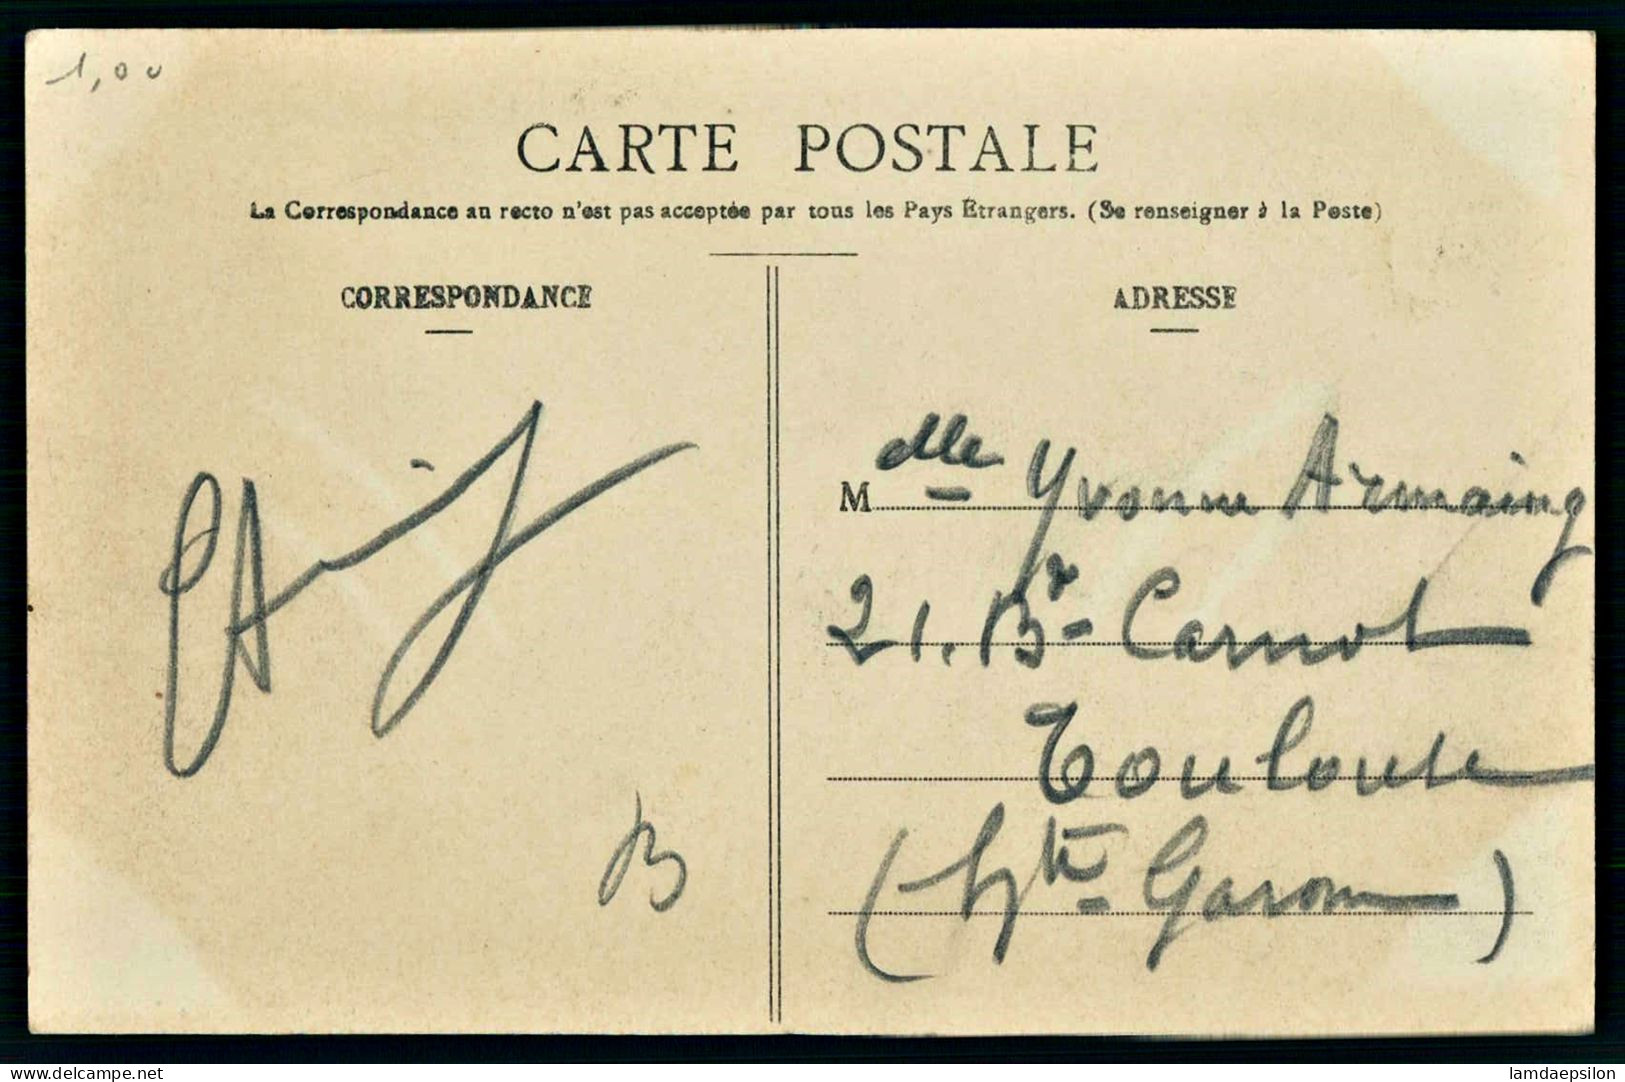 1,00
CARTE POSTALE
La Correspondance au recto n'est pas acceptée par tous les Pays Étrangers. (Se renseigner à la Poste)
CORRESPONDANCE
ADRESSE
Mdlle Yvonne Armaing
21. Bd Carnot
Toulouse
(Hte Garonne)
B
delcampe.net
lamdaepsilon